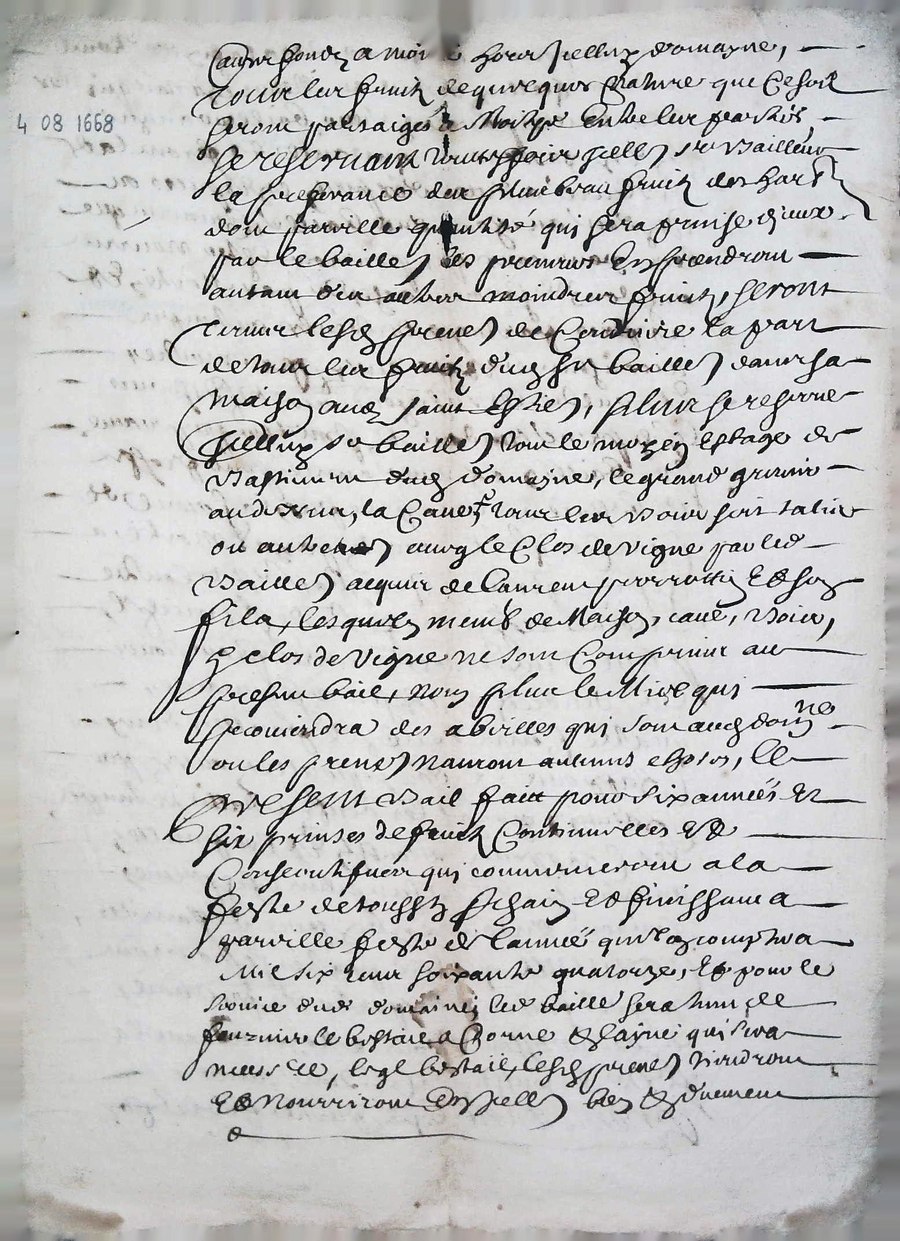 4 08 1668
a moi hors jcelluy domayne,
tous les fruictz de quelque nature que ce soit
seront partaigés a Moitye Entre les parties
se reservant jcelluy sr Bailleur
la preferance des plus beau fruictz des
dont pareille quantité qui sera prinse d'jceux
par le bailleur les preneurs En prendront
autant des autres moindres fruictz, seront
tenus lesd preneurs de Conduire la part
de tous les fruictz dud sr bailleur dans sa
maison aud Saint plus se reserve
jcelluy sr bailleur tout le moyen Estage du
Bastiment dud domayne, le grand grenier
au dessus, la Cave tous les Bois soit
ou autres avecq le Clos de vigne par led
Bailleur acquis de laurens Et son
filz, lesquelz membres de Maison, cave, Bois,
& clos de vigne ne sont Comprins au
present bail, non plus le Miel qui
proviendra des abeilles qui sont aud domne
ou les preneurs nauront aulcuns choses, le
present Bail faict pour six années &
six prinses de fruictz Continuelles Et
Consecutifves qui commenceront a la
feste de toussts prochain Et finissant a
pareille feste de lannée quilon comptera
Mil six cens soixante quatorze, Et pour le
service dud domaine led bailleur sera tenu de
fournir le bestail a Corne & layne qui sera
necessre, leql bestail, lesd preneurs tiendront
Et Nourriront bien & duement